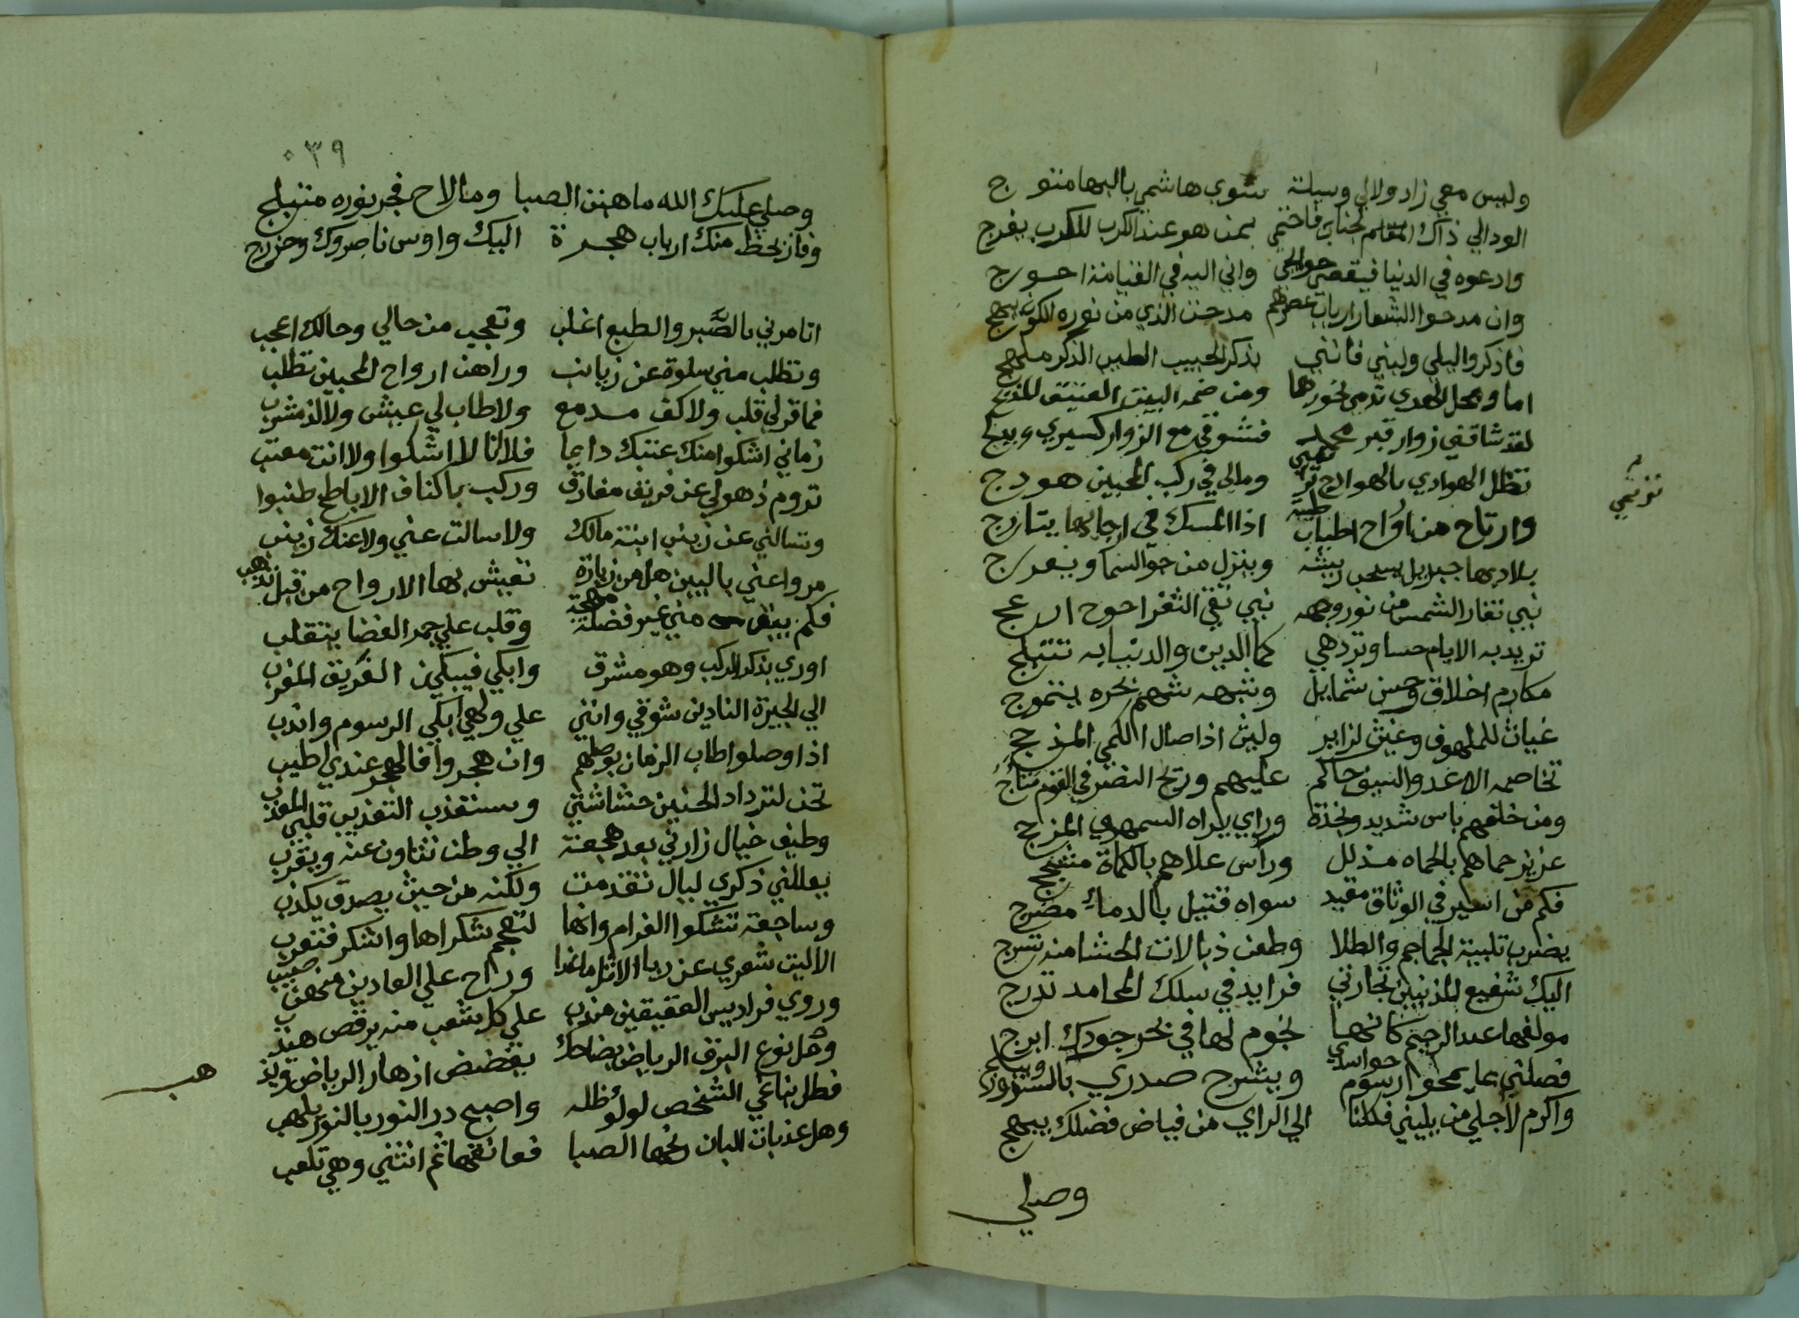 وليس معي زاد ولا لي وسيلة سوي هاشمي بالبها متوج
الود الي ذاك المقام لجناب فاحتمي بمن هو عند الكرب للكرب يفرج
وادعوه في الدنيا فيقضي حوايجي واني اليه في القيامة احوج
وان مدحوا الشعار ارباب عصرهم مدحت الذي من نوره الكون يبهج
فاذكر واليلي ولبني فانني بذكر الحبيب الطيب الذكر ملهج
اما ومحل الهدي تدمي نحورها ومن ضمه البيت العتيق المدبج
لقد شاقني زوار قبر محمد فشوقي مع الزوار كسري ويدلج
تظل الهوادي بالهوادج ترتمي ومالي في ركب المحبين هودج
ترتمي
وارتاح من ارواح اطياب طيبة اذا المسك في ارجائها يتارج
بلاد بها جبريل يسحب ريشه وينزل من جو السما ويعرج
نبي تغار الشمس من نور وجهه نبي نقي الثغر احوج ادعج
تزيد به الايام حسنا وتزدهي كما الدين والدنيا به تتبلج
مكارم اخلاق وحسن شمايل ونبهه شهم نحره يتموج
غياث للملهوف وغيث لزاير وليث اذا صال الكمي المدجج
تخاصمه الاعدا والسيف حاكم عليهم وريح النصر في القوم تتاج
ومن خلفهم باس شديد ونجدة وراي يراه السمهري المزجج
عزيز حماهم بالحماه مذلل وراس علاهم بالكماة متجج
فكم من اسير في الوثاق مقيد سواه قتيل بالدماء مضرج
بضرب تلبية الجماجم والطلا وطعن ذبالات الحشا منه تسرج
اليك شفيع المذنبين تجارتي فرايد في سلك المحامد تدرج
مولفها عبد الرحيم كانها نجوم لها في بحر جودك ابرج
فصلني بما يمحوا رسوم حواسدي ويشرح صدري بالسرور ويبلج
واكرم لاجلي من يليني فكلنا الي الراي من فياض فضلك يبهج
وصلي
٠٣٩
وصلي عليك الله ما هبت الصبا وما لاح فجر نوره متبلج
وفاز بحظ منك ارباب هجرة اليك واوس ناصروك وخزرج
اتامرني بالصَّبر والطبع اغلب وتعجب من حالي وحالك اعجب
وتطلب مني سلوة عن زيانب وراهن ارواح المحبين تطلب
فما قر لي قلب ولا كف مدمع ولا طاب لي عيش ولا لذ مشرب
زماني اشكوا منك عتبك دايما فلا انا لا اشكوا ولا انت معتب
تروم ذهولي عن فريق مفارق وركب باكناف الاباطح طنبوا
وتسالني عن زينب ابنة مالك ولا سالت عني ولا عنك زينب
مروا عني بالبين هل من زيارة تعيش بها الارواح من قبل تذهب
فكم يبق مني غير فضلة مهجة وقلب علي جمر الغضا يتقلب
اوري بذكر الركب وهو مشرق وابكي فيبكين الفريق المغرب
الي الجيزة النادين شوقي وانني علي ولهي ابكي الرسوم واندب
اذا وصلوا طاب الزمان بوصلهم وان هجروا فالهجر عندي اطيب
تحن لترداد الحنين حشاشتي وستعذب التعذيب قلبي المعذب
وطيف خيال زارني بعد هجعة الي وطن نتاون عنه ويقرب
يعللني ذكري ليال تقدمت ولكنه من حيث يصدق يكذب
وساجعة تشكوا الغرام وانها لتعجم شكراها واشكر فتعرب
الا ليت شعري عن ربا الاثل ما غدا وراح علي الغادين منهن صيب
وروي فراديس العقيقين منه علي كل شعب منه يرقص هيدب
وهل نوع البرق الرياض بضاحك يفضض ازهار الرياض ويذهب
فظل يناغي الشخص لولؤ ظله واصبح در النور بالنور يلهب
وهل عذبات البان رنحها الصبا فعانقها ثم انثني وهي تلعب
هب